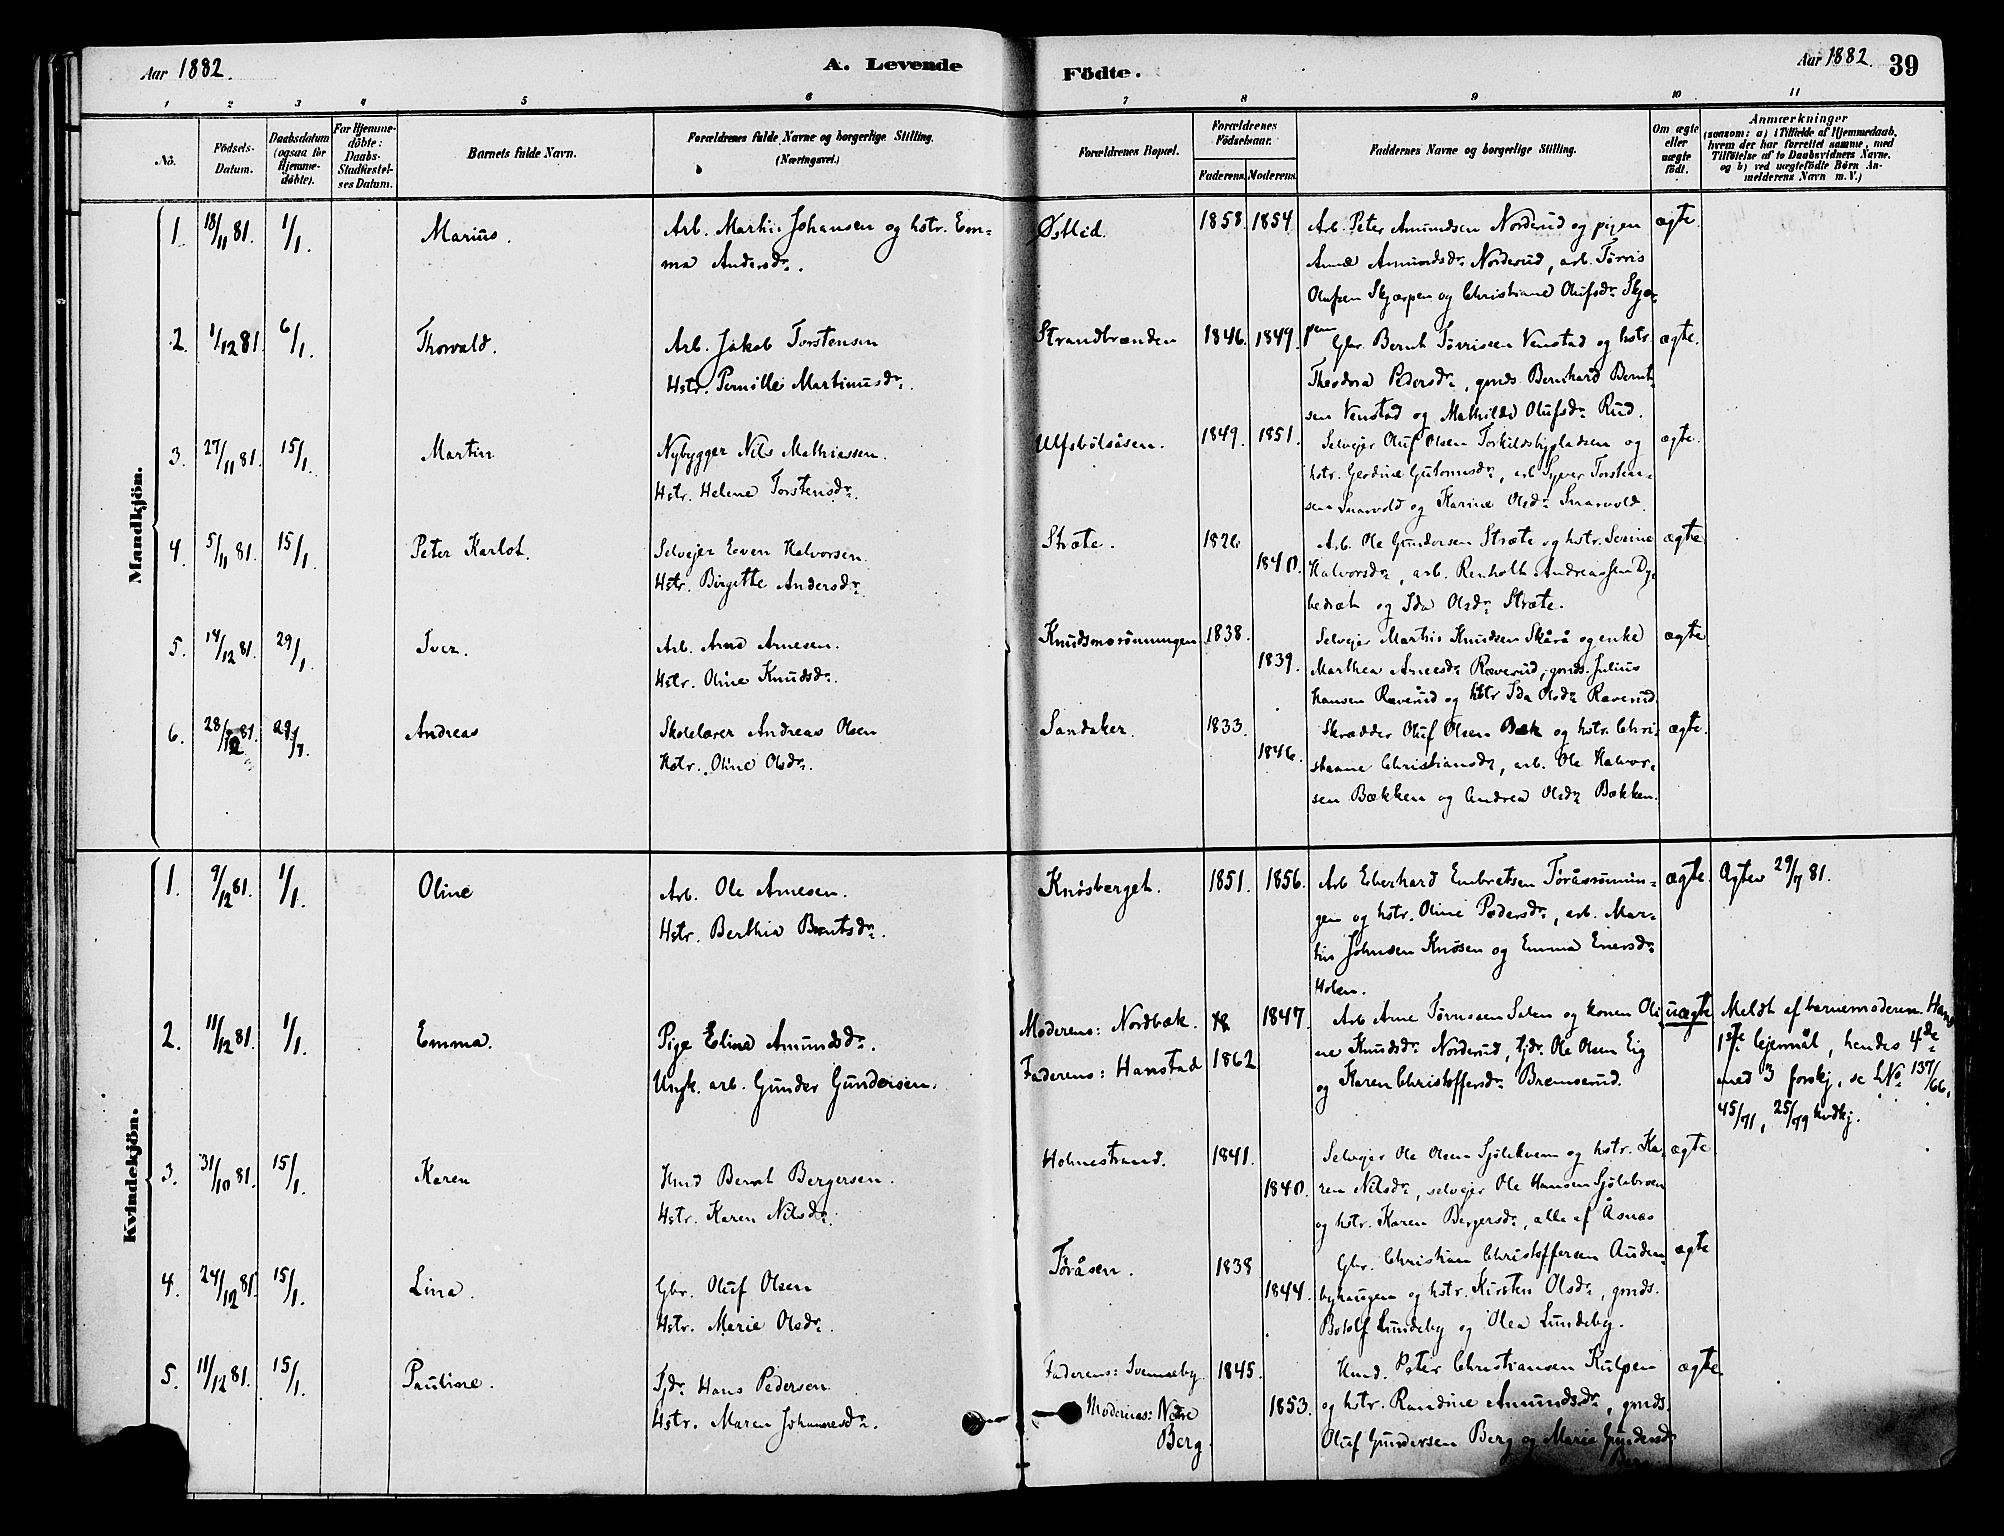 Aar 1882.
A. Levende
Födte.
Aar 1882.
39
1 2 3 4 5 6 7 8 9 10 11
No.
Födsels-Datum.
Daabsdatum (ogsaa for Hjemme-döbte).
For Hjemme-döbte: Daabs-Stadfæstel-ses Datum.
Barnets fulde Navn.
Forældrenes fulde Navne og borgerlige Stilling.
(Næringsvei.)
Forældrenes Bopæl.
Forældrenes Födselsaar.
Faderens.
Moderens.
Faddernes Navne og borgerlige Stilling.
Om ægte eller uægte födt.
Anmærkninger
(saasom: a) i Tilfælde af Hjemmedaab, hvem der har forrettet samme, med Tilföielse af to Daabsvidners Navne, og b) ved uægtefödte Börn An-melderens Navn m. V.)
Mandkjön.
1. 18/11 81. 1/1. Marius.
Arb. Marthin Johansen og hstr. Em-
ma Andersdr.
Østlid. 1858. 1854.
Arb. Peter Amundsen Norderud og pigen
Anne Amundsdr Norderud, arb. Tørris
Olufsen Skjærpen og Christiane Olufsdr Skjær-
pen
ægte.
2. 1/12 81. 6/1. Thorvald.
Arb. Jakob Torstensen
Hstr. Pernille Martinusdr.
Strandbrænden 1846. 1849.
Gbr. Bernt Tørrisen Venstad og hstr.
Theodora Pedersdr, gmds. Bernhard Bernt-
sen Venstad og Mathilde Olufsdr Rud.
ægte.
3. 27/11 81. 15/1. Martin
Nybygger Nils Mathiassen.
Hstr. Helene Torstensdr.
Ulfsbølsåsen. 1849. 1851.
Selvejer Oluf Olsen Torkildsbypladsen og
hstr. Gerdine Gutormsdr, arb. Syver Torsten-
sen Snarvold og Karine Olsdr Snarvold.
ægte.
4. 5/11 81. 15/1. Peter Karlot.
Selvejer Even Halvorsen.
Hstr. Birgitte Andersdr.
Stræte. 1826. 1840.
Arb. Ole Gundersen Stræte og hstr. Severine
Halvorsdr, arb. Renholt Andreassen
og Ida Olsdr Stræte.
ægte
5. 14/12 81. 29/1. Iver.
Arb. Arne Arnesen.
Hstr. Oline Knudsdr.
Knudsmorønningen 1838. 1839.
Selvejer Marthis Knudsen Skårå og enke
Marthea Arnesdr Ræverud, gmds. Julius
Hansen Ræverud og hstr Ida Olsdr Ræverud.
ægte
6. 28/12 81. 29/1. Andreas
Skolelærer Andreas Olsen
Hstr. Oline Olsdr.
Sandaker. 1833. 1846.
Skrædder Oluf Olsen Bæk og hstr. Chri-
stiane Christiansdr, arb. Ole Halvor-
sen Bækken og Andrea Olsdr Bækken.
ægte.
Kvindekjön.
1. 9/12 81. 1/1. Oline
Arb. Ole Arnesen.
Hstr. Berthea Berntsdr.
Knøsberget. 1851. 1856.
Arb Eberhard Embretsen Tøråsrønnin-
gen og hstr. Oline Pedersdr, arb. Mar-
tin Johnsen Knøsen og Emma Enersdr
Holen.
ægte. Agtev 29/7 81.
2. 11/12 81. 1/1. Emma.
Pige Eline Amundsdr.
Ungk. arb. Gunder Gundersen.
Moderens: Nordbæk. 18 1847.
Faderens: Hanstad 1862
Arb Arne Tørrissen Solen og konen Oli-
ne Knudsdr Norderud, tjdr. Ole Olsen Eig
og Karen Christoffersdr Bremserud.
uægte
Meldt af barnemoderen. Hans
1ste lejermål, hendes 4de
med 3 forskj, se LNo 137/66.
45/71, 25/79 kvdkj.
3. 31/10 81. 15/1. Karen
Hmd Bernt Bergersen.
Hstr. Karen Nilsdr.
Holmestrand. 1841. 1840.
Selvejer Ole Olsen Sjølikvern og hstr. Ka-
ren Nilsdr, selvejer Ole Hansen Sjølibroen
og hstr. Karen Bergersdr, alle af Åsnæs
ægte
4. 24/12 81. 15/1. Lina.
Gbr. Oluf Olsen
Hstr. Marie Olsdr.
Tøråsen. 1838 1844.
Gbr. Christian Christoffersen Auden-
byhaugen og hstr. Kirsten Olsdr, gmds.
Botolf Lundeby og Olea Lundeby.
ægte
5. 11/12 81. 15/1. Pauline.
Tjdr Hans Pedersen.
Hstr. Maren Johannesdr.
Faderens: Svenneby. 1845.
Moderens: Nedre
Berg. 1853.
Hmd. Peter Christiansen Kulpen
og hstr. Randine Amundsdr, gmds.
Oluf Gundersen Berg og Marie Gundersdr
Berg.
ægte